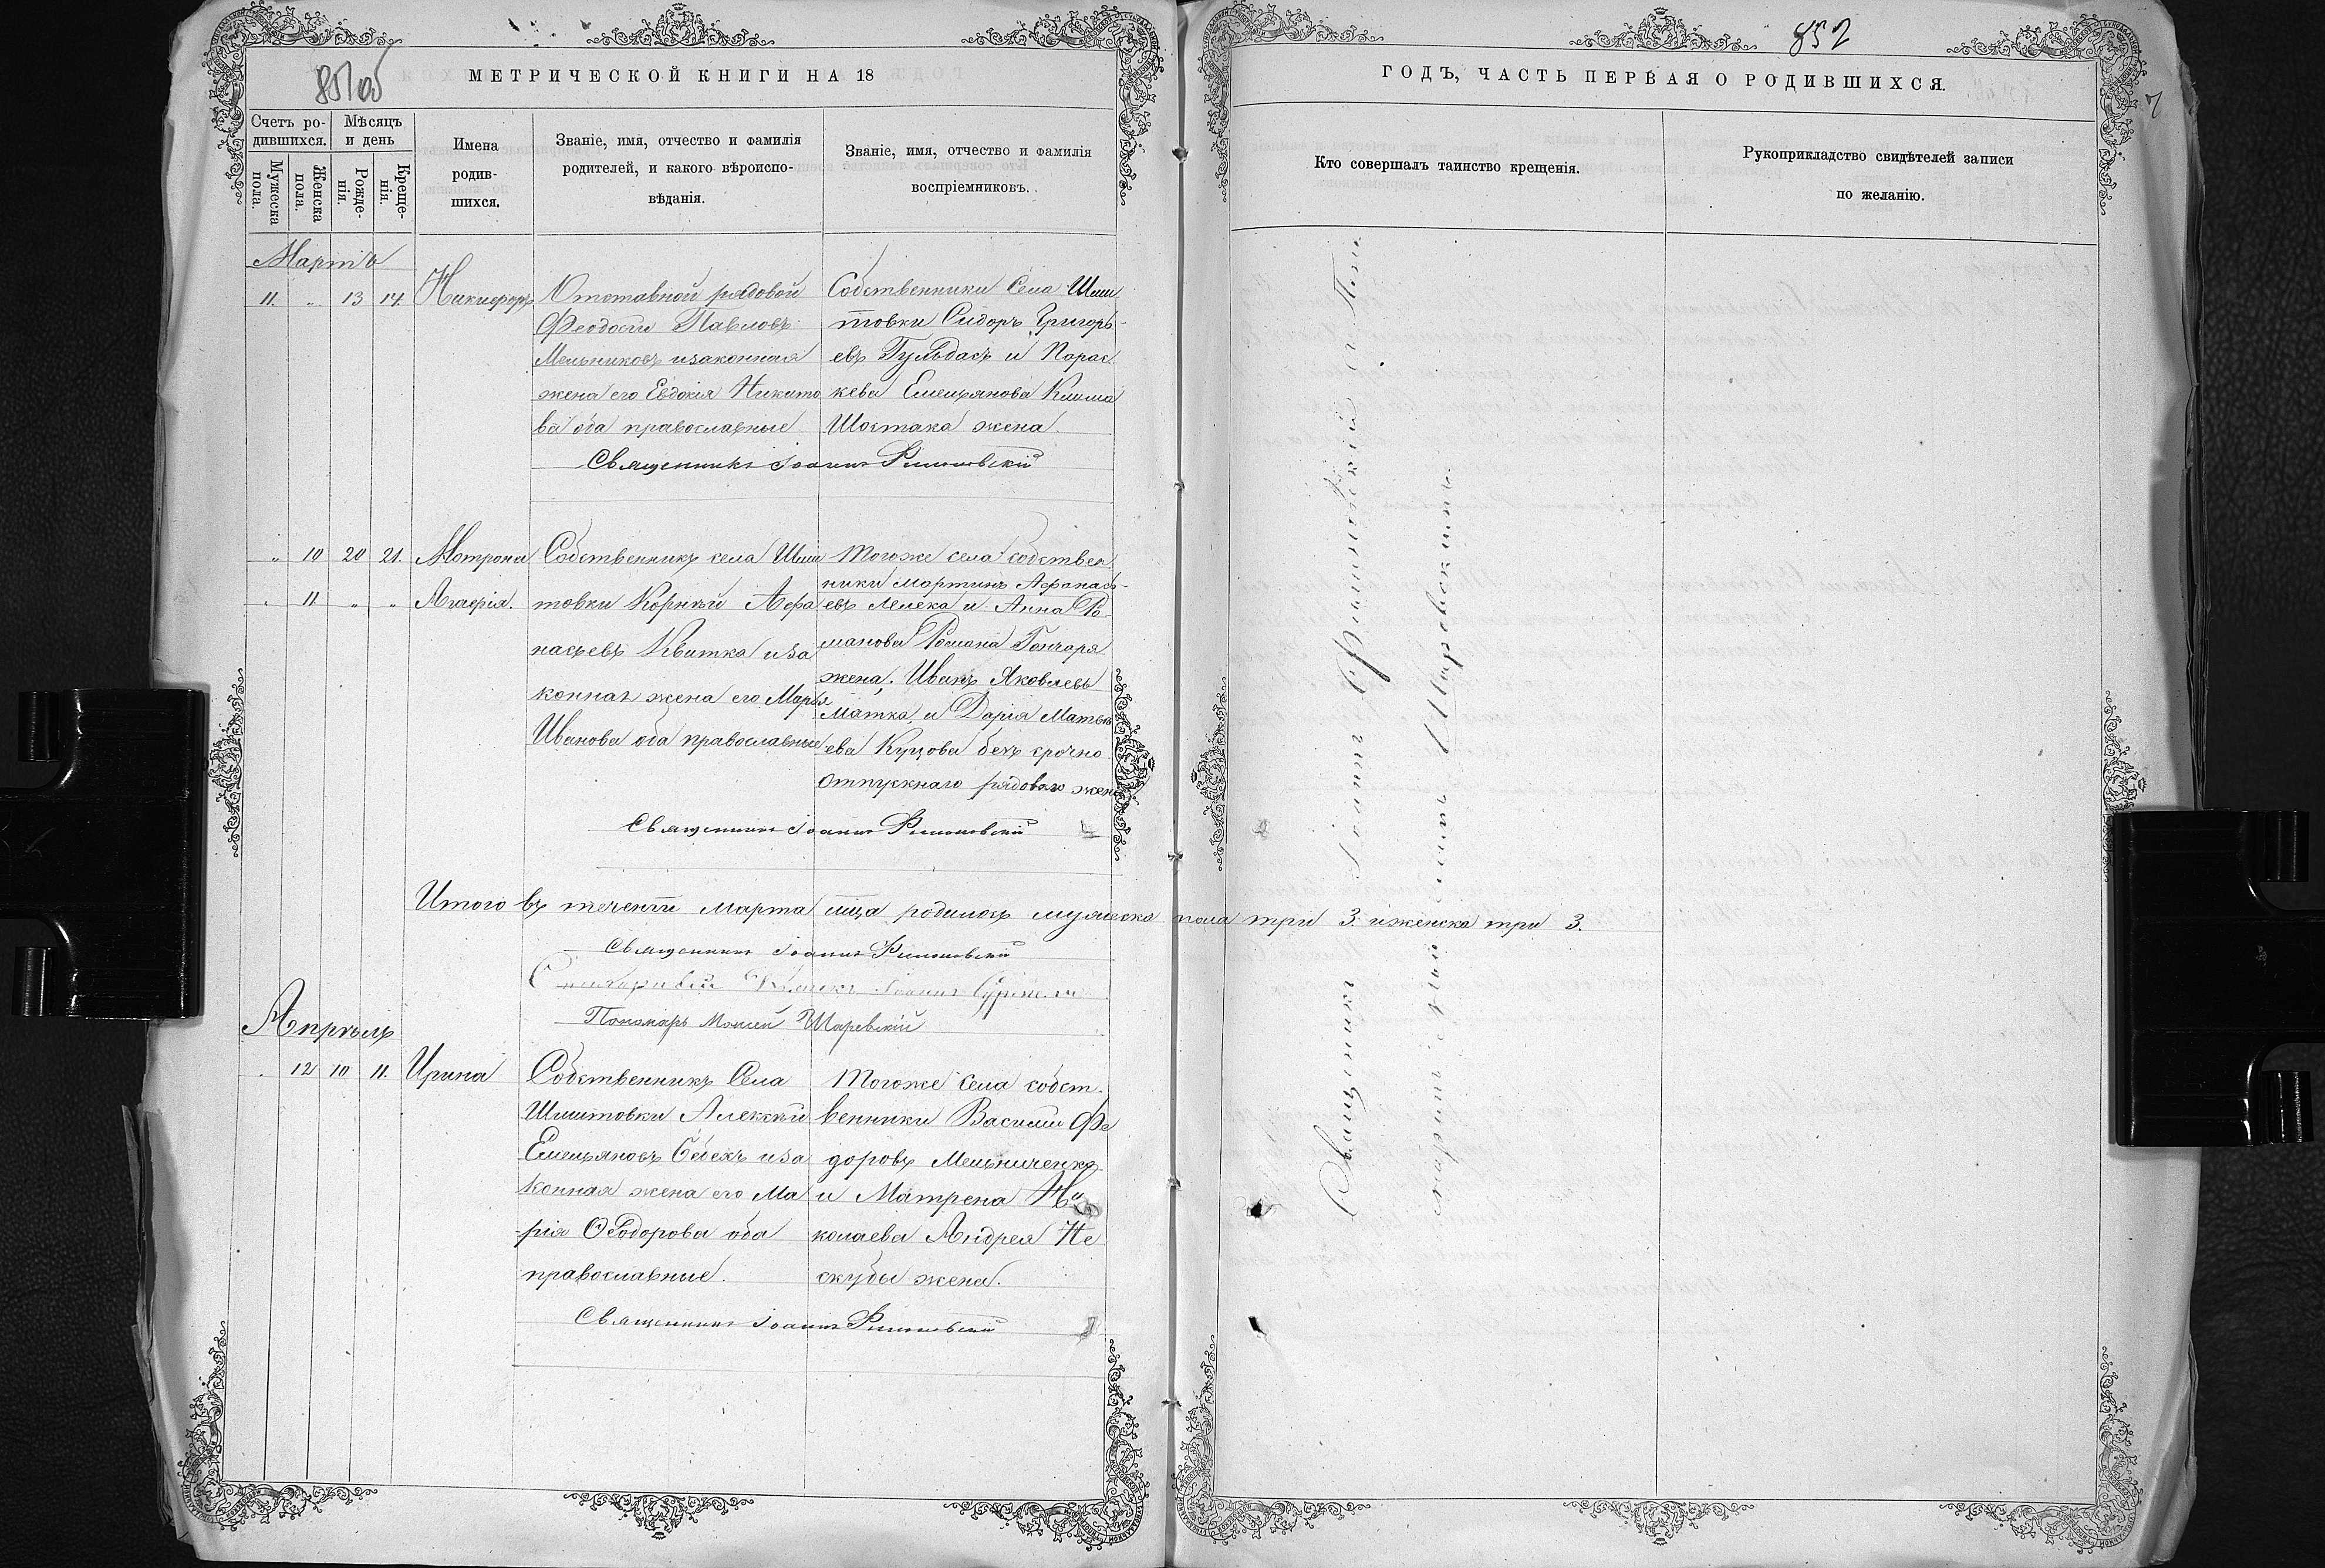 851 об
МЕТРИЧЕСКОЙ КНИГИ НА 18
Счетъ ро-
дившихся.
Мѣсяцъ
и день
Мужеска
пола.
Женска
пола.
Рожде-
нія.
Креще-
нія.
Имена
родив-
шихся.
Званіе, имя, отчество и фамилія
родителей, и какого вѣроиспо-
вѣданія.
Званіе, имя, отчество и фамилія
воспріемниковъ.
Мартъ
11. „ 13 14. Никифоръ
Отставной рядовой
Феодосій Павловъ
Мельниковъ изаконная
жена его Евдокія Никито
ва оба православные
Собственники Села
товки Сидоръ Григорь-
евъ Гульдасъ и Парас
кева Емельянова Клима
Шостака жена.
Священникъ Іоаннъ
„ 10 20 21. Мотрона
„ 11 „ „ Агафія.
Собственникъ села
товки Корнѣй Афа
насьевъ Квитка иза
конная жена его Марья
Иванова оба православные
Тогоже села собствен
ники Мартинъ Афанась-
евъ Лелека и Анна Ро
манова Романа Гончаря
жена, Иванъ Яковлевъ
Матка, и Дарія Матвѣ
ева Куцова безъ срочно
отпускнаго рядоваго жена
Священникъ Іоаннъ
Итого въ теченіи марта мца родилось мужеска пола три 3. иженска три 3.
Священникъ Іоаннъ
Іоаннъ
Пономарь Моисей Шаревскій
Апрѣль
„ 12 10 11. Ирина
Собственникъ Села
Алексѣй
Емельяновъ иза
конная жена его Ма
рія Ѳеодорова оба
православные.
Тогоже села собст.
венники Василій Фе
доровъ Мельниченко
и Матрена Ни
колаева Андрея Не
скубы жена.
Священникъ Іоаннъ
852
7
ГОДЪ, ЧАСТЬ ПЕРВАЯ О РОДИВШИХСЯ.
Кто совершалъ таинство крещенія.
Рукоприкладство свидѣтелей записи
по желанію.
Священникъ Іоаннъ
Шаревскимъ.